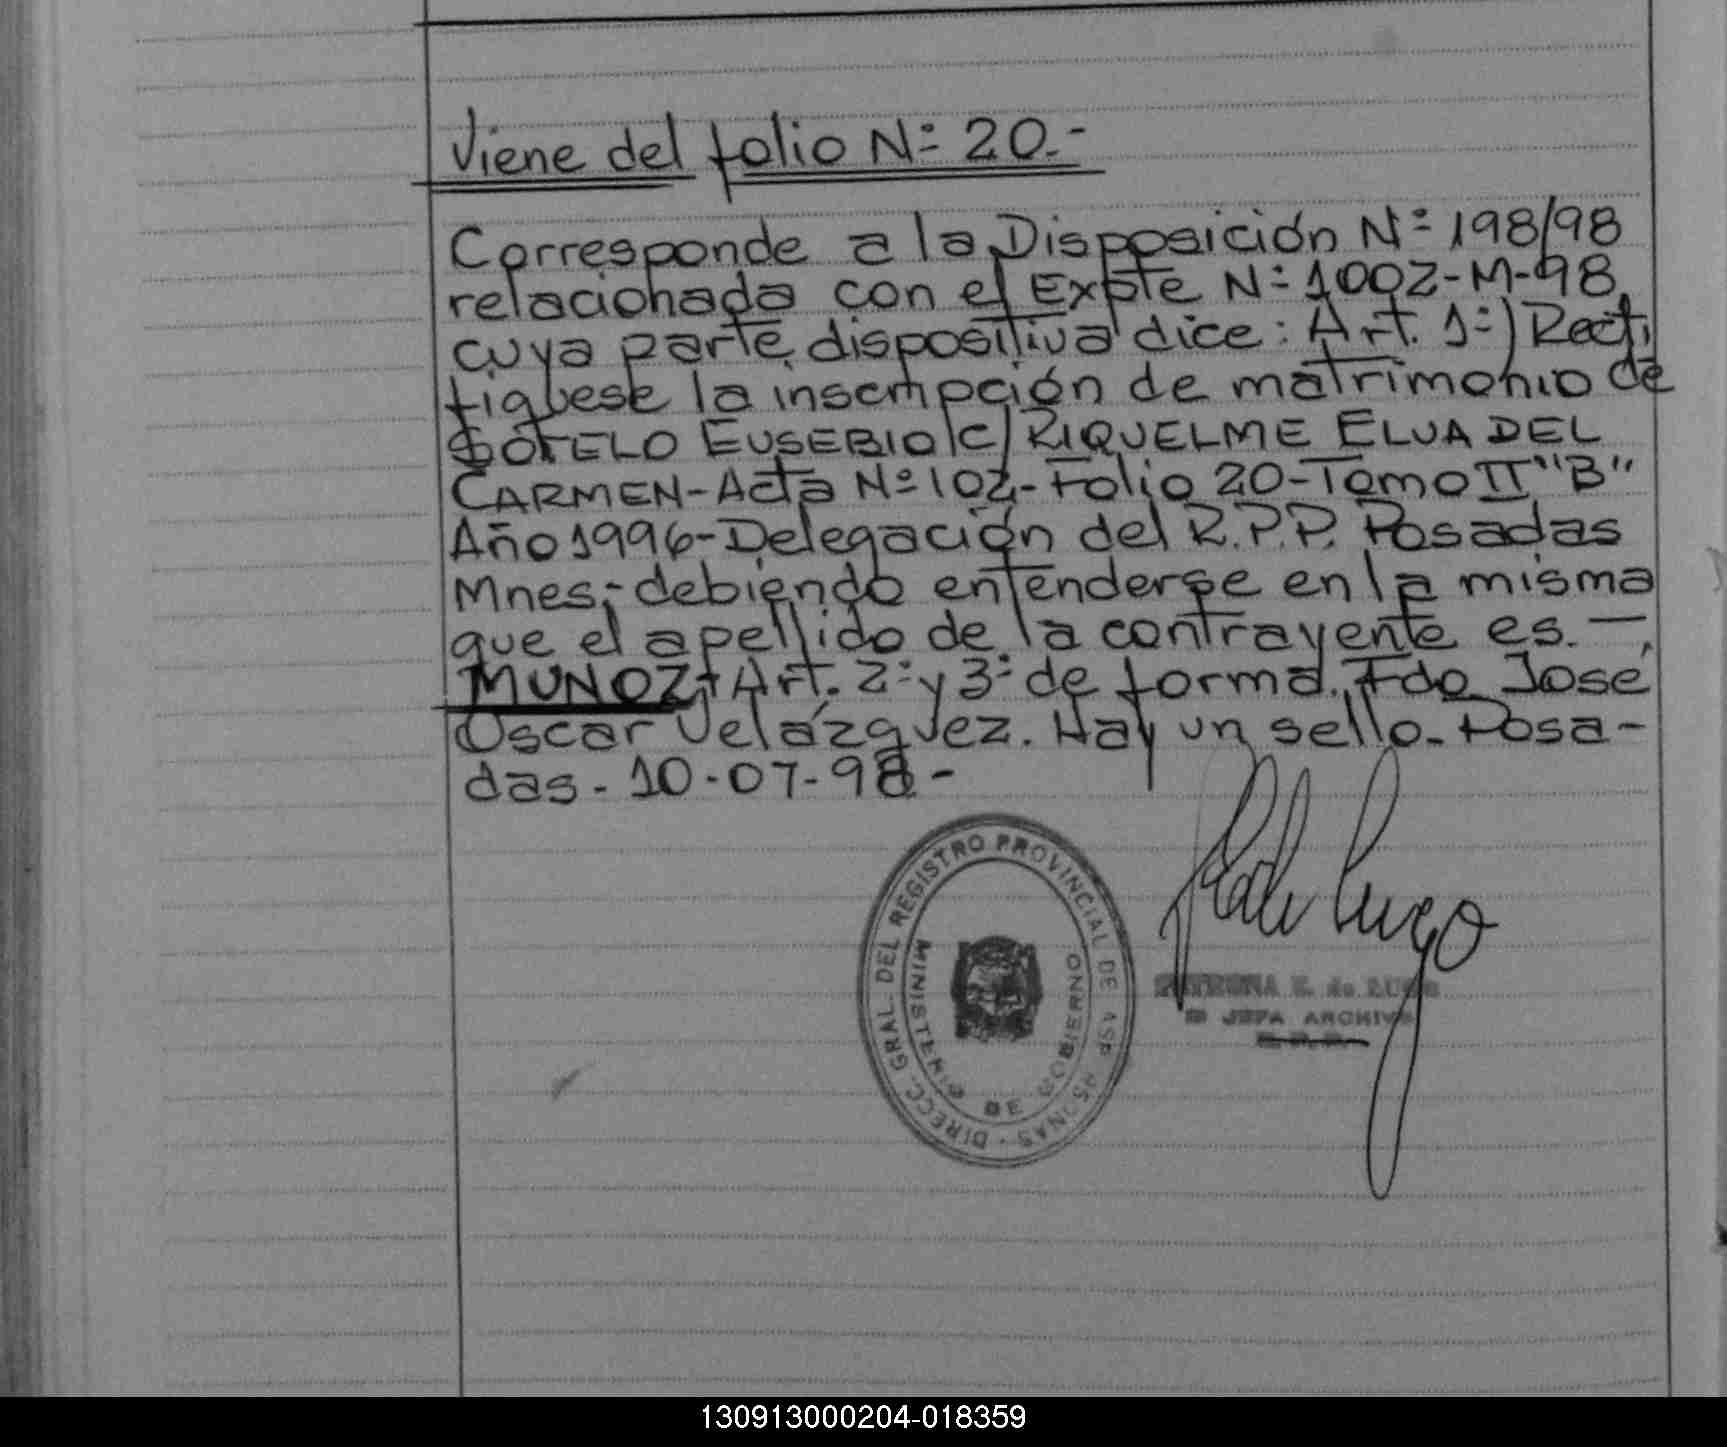 Viene del folio Nº 20.-
Corresponde a la Disposición Nº 198/98
relacionada con el Expte Nº 1002-M-98,
cuya parte dispositiva dice: Art. 1º) Recti
fiquese la inscripción de matrimonio de
SOTELO EUSEBIO c/ RIQUELME ELVA DEL
CARMEN-Acta Nº 102-Folio 20-Tomo II "B"
Año 1996-Delegación del R.P.P. Posadas
Mnes; debiendo entenderse en la misma
que el apellido de la contrayente es.-
MUNOZ Art. 2º y 3º de forma. Fdo José
Oscar Velázquez. Hay un sello. Posa-
das-10-07-98-
DIRECC. GRAL. DEL REGISTRO PROVINCIAL DE
MINISTERIO DE GOBIERNO
de LUGO
JEFA ARCHIVO
130913000204-018359